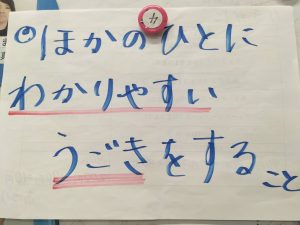 ◎ほかのひとに
わかりやすい
うごきをすること
4